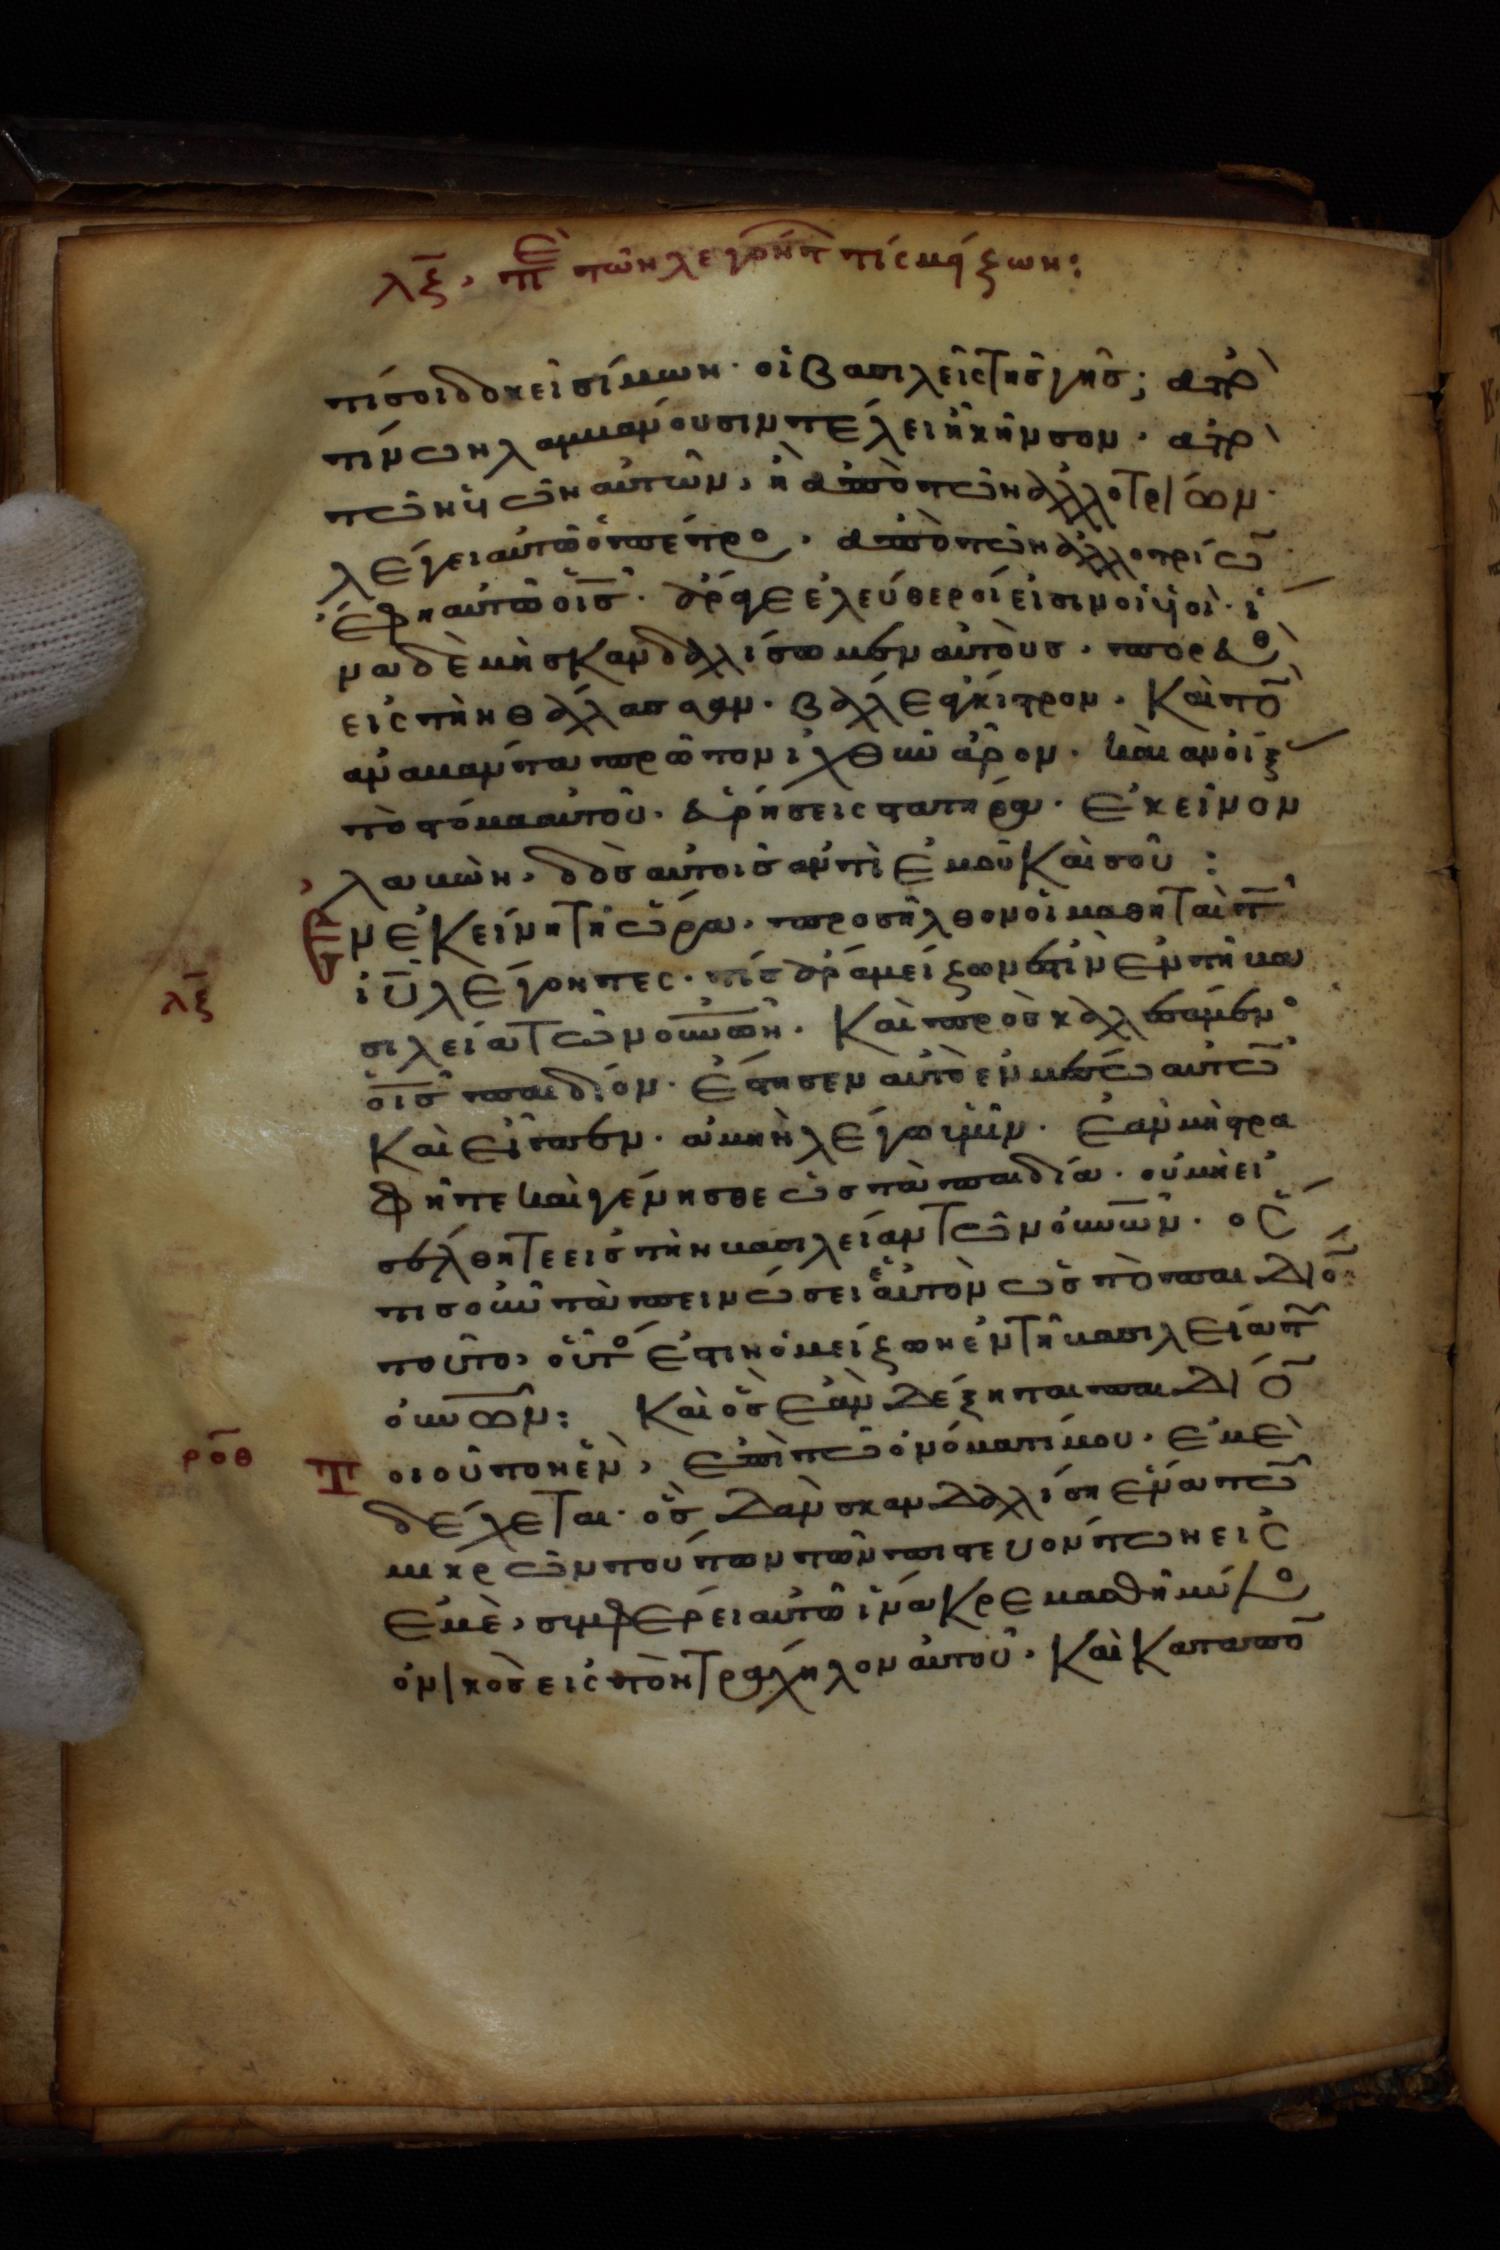 λξ, πε τῶν λεγόντ τίς μείζων:
τί σοι δοκεῖ σίμων· οἱ βασιλεῖς τῆς γῆς; ἀπὸ
τίνων λαμβάνουσιν τέλει ἢ κῆνσον· ἀπὸ
τῶν ϋῶν αὐτῶν, ἢ ἀπὸ τῶν ἀλλοτρίων·
λέγει αὐτῶ ὁ πέτρο, ἀπὸ τῶν ἀλλοτρίω
ἔφη αὐτῶ ὁ ις· ἄραγε ἐλεύθεροί εἰσιν οἱ ϋοὶ· ἵ
να δὲ μὴ σκανδαλίσωμεν αὐτοὺς, πορευθ
εὶς τὴν θάλασσαν· βάλε ἄγκιστρον· καὶ το
ἀναβάντα πρῶτον ἰχθὺν ἆρον· καὶ ἀνοίξ
τὸ στόμα αὐτοῦ· εὑρήσεις στατῆρα· ἐκεῖνον
λαβὼν, δὸς αὐτοῖς ἀντὶ ἐμοῦ καὶ σοῦ :
Ἐν ἐκείνη τῆ ὥρα, προσῆλθον οἱ μαθηταὶ τ
λξ
ιυ λέγοντες· τίς ἄρα μείζων ἐστὶν ἐν τῆ βα
σιλεία τῶν ουνων. καὶ προσκαλεσάμεν
ὁ ις παιδίον· ἔστησεν αὐτὸ ἐν μέσω αὐτῶ
καὶ εἶπεν· ἀμὴν λέγω ὑμῖν· ἐὰν μὴ στρα
φῆτε καὶ γένησθε ὡς τὰ παιδία· οὐ μὴ εἰ
σέλθητε εἰς τὴν βασιλείαν τῶν ουνων· ὅσ
τις οὖν ταπεινώσει ἑαυτὸν ὡς τὸ παιδίο
τοῦτο, οὗτο ἐστιν ὁ μείζων ἐν τῆ βασιλεία τ
ουνων: καὶ ὃς ἐὰν δέξηται παιδίο
ροθ
Τοιοῦτον ἓν, ἐπὶ τῶ ὀνόματί μου· ἐμὲ
δέχεται· ὃς δ' ἂν σκανδαλίση ἕνα τῶ
μικρῶν τούτων τῶν πιστευόντων εἰς
ἐμὲ, συμφέρει αὐτῶ ἵνα κρεμασθῆ μύλο
ὀνικὸς εἰς τὸν τράχηλον αὐτοῦ· καὶ καταπο